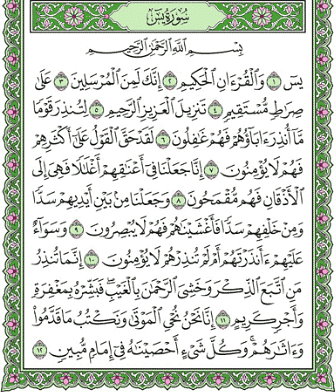 سُورَةُ يسٓ
بِسْمِ ٱللَّهِ ٱلرَّحْمَٰنِ ٱلرَّحِيمِ
يسٓ ١ وَٱلْقُرْءَانِ ٱلْحَكِيمِ ٢ إِنَّكَ لَمِنَ ٱلْمُرْسَلِينَ ٣ عَلَىٰ
صِرَٰطٍ مُّسْتَقِيمٍ ٤ تَنزِيلَ ٱلْعَزِيزِ ٱلرَّحِيمِ ٥ لِتُنذِرَ قَوْمًا
مَّآ أُنذِرَ ءَابَآؤُهُمْ فَهُمْ غَٰفِلُونَ ٦ لَقَدْ حَقَّ ٱلْقَوْلُ عَلَىٰٓ أَكْثَرِهِمْ
فَهُمْ لَا يُؤْمِنُونَ ٧ إِنَّا جَعَلْنَا فِىٓ أَعْنَٰقِهِمْ أَغْلَٰلًا فَهِىَ إِلَى
ٱلْأَذْقَانِ فَهُم مُّقْمَحُونَ ٨ وَجَعَلْنَا مِنۢ بَيْنِ أَيْدِيهِمْ سَدًّا
وَمِنْ خَلْفِهِمْ سَدًّا فَأَغْشَيْنَٰهُمْ فَهُمْ لَا يُبْصِرُونَ ٩ وَسَوَآءٌ
عَلَيْهِمْ ءَأَنذَرْتَهُمْ أَمْ لَمْ تُنذِرْهُمْ لَا يُؤْمِنُونَ ١٠ إِنَّمَا تُنذِرُ
مَنِ ٱتَّبَعَ ٱلذِّكْرَ وَخَشِىَ ٱلرَّحْمَٰنَ بِٱلْغَيْبِ ۖ فَبَشِّرْهُ بِمَغْفِرَةٍ
وَأَجْرٍ كَرِيمٍ ١١ إِنَّا نَحْنُ نُحْىِ ٱلْمَوْتَىٰ وَنَكْتُبُ مَا قَدَّمُوا۟
وَءَاثَٰرَهُمْ ۚ وَكُلَّ شَىْءٍ أَحْصَيْنَٰهُ فِىٓ إِمَامٍ مُّبِينٍ ١٢